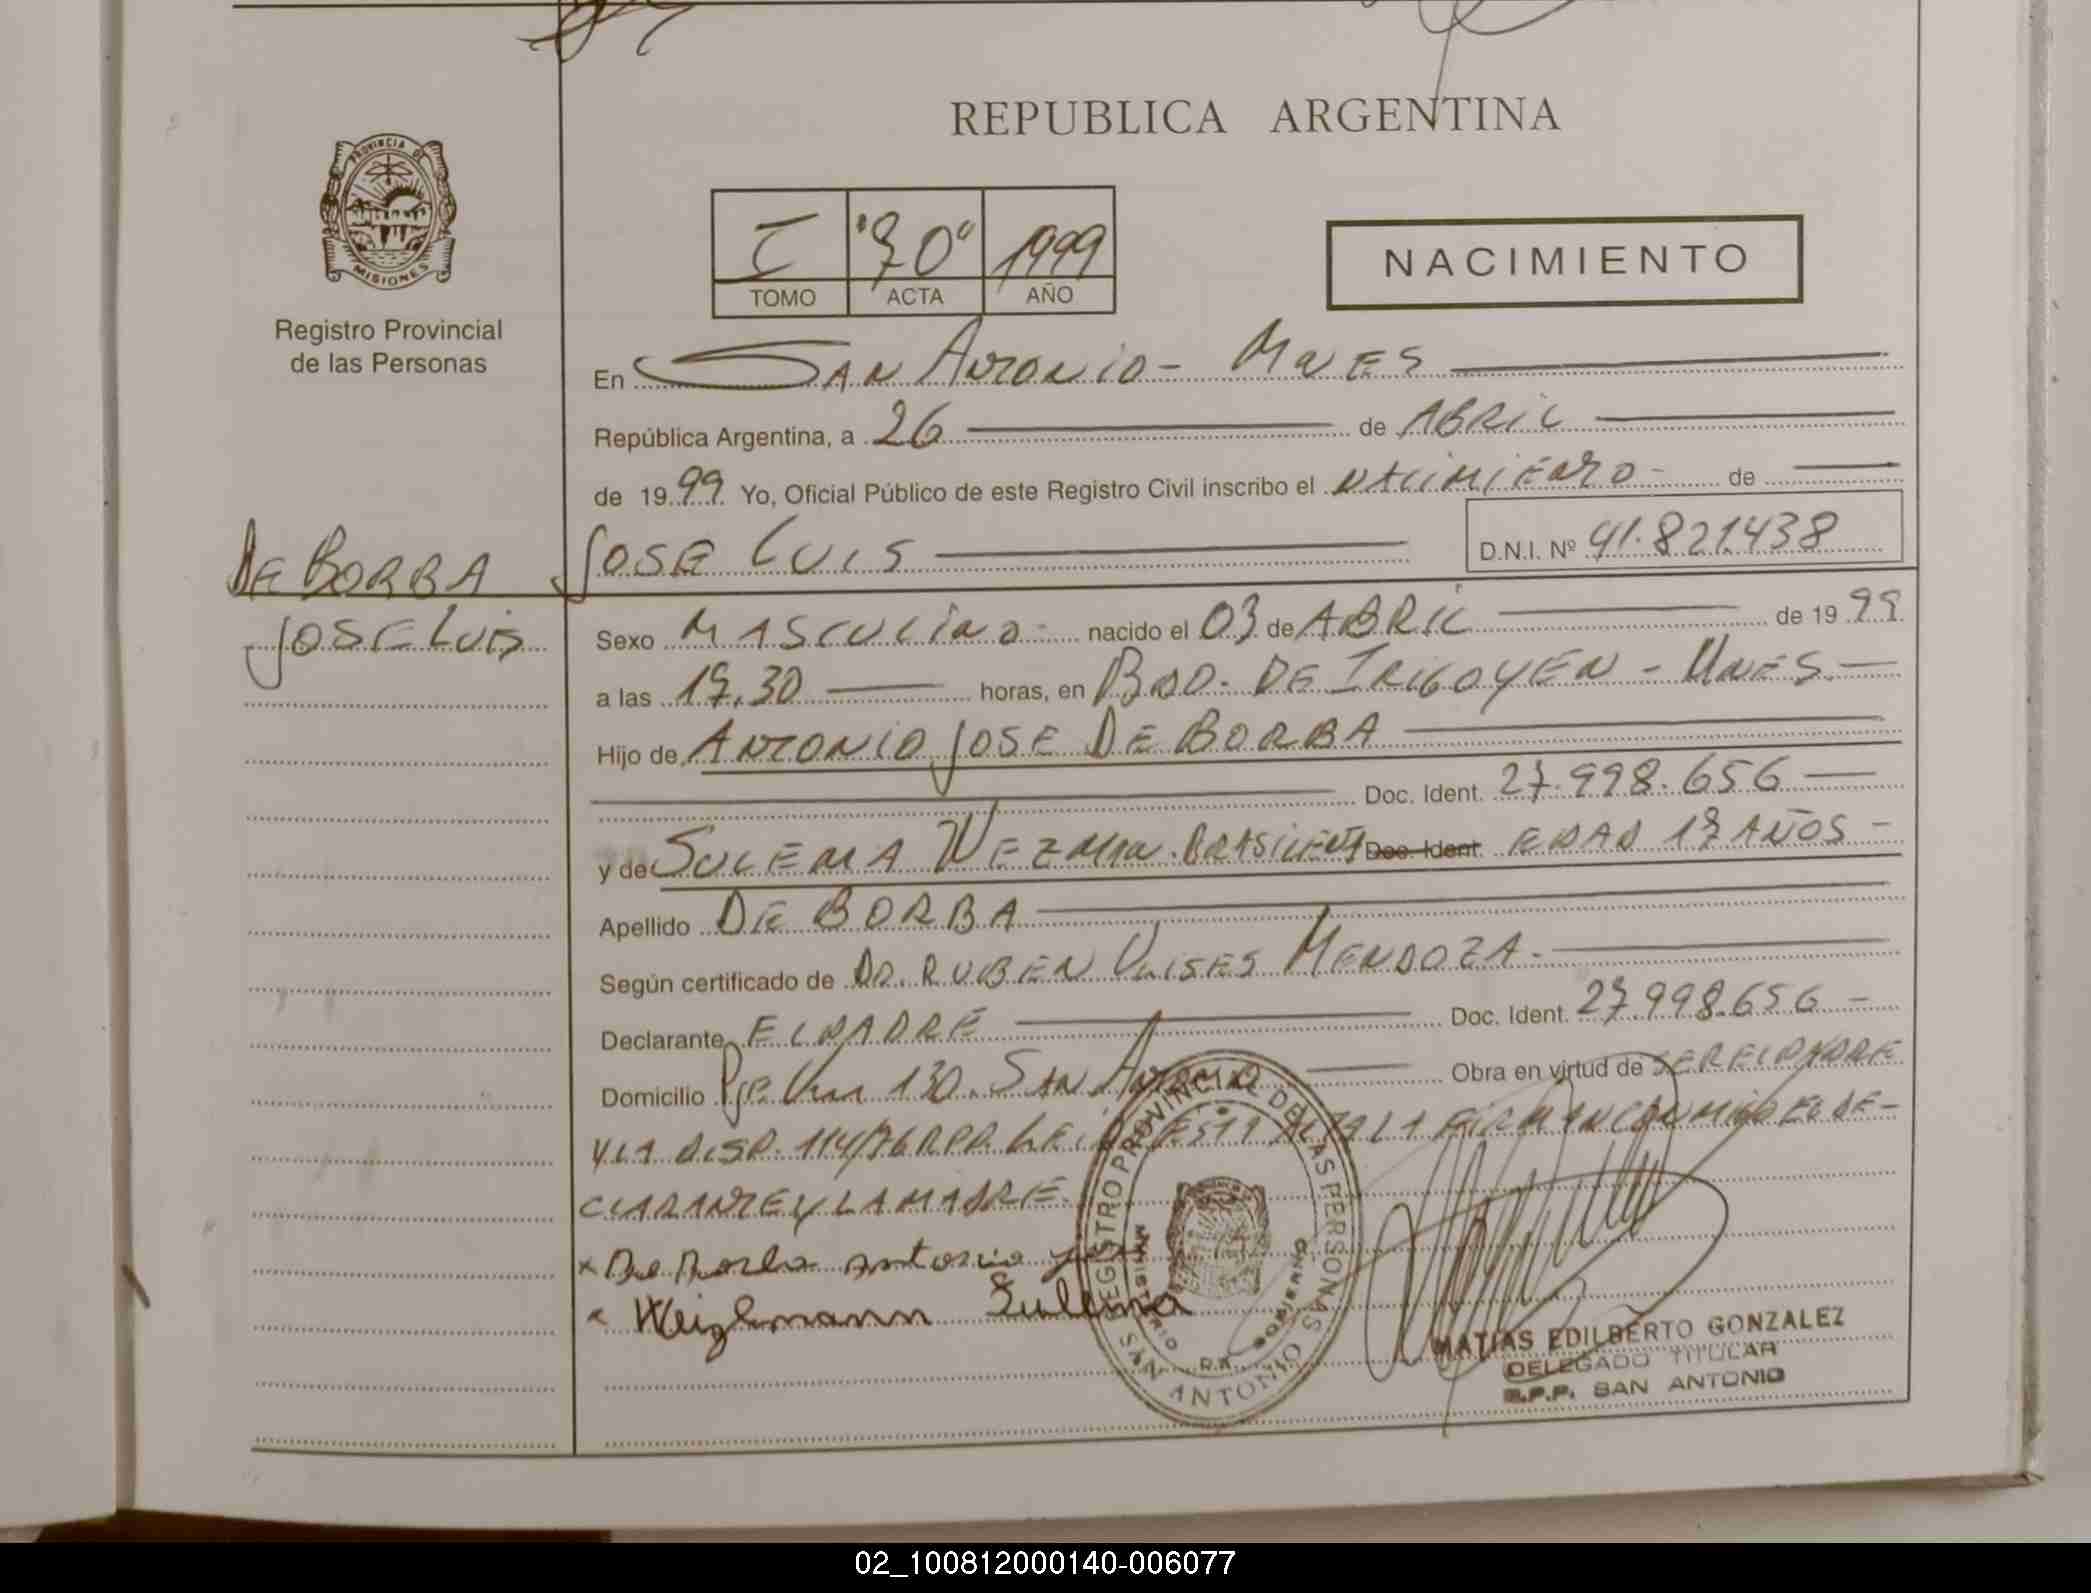 REPUBLICA ARGENTINA
PROVINCIA DE
MISIONES
Registro Provincial
de las Personas
I "70" 1999
TOMO ACTA AÑO
NACIMIENTO
En SAN ANTONIO - MNES
República Argentina, a 26 de ABRIL
de 1999 Yo, Oficial Público de este Registro Civil inscribo el NACIMIENTO - de
JOSE LUIS D.N.I. Nº 41.821.438
DE BORBA
JOSE LUIS
Sexo MASCULINO - nacido el 03 de ABRIL de 1999
a las 17,30 horas, en BDO. DE IRIGOYEN - MNES.
Hijo de ANTONIO JOSE DE BORBA
Doc. Ident. 27.998.656
y de SULEMA WEZMAN. BRASILEÑA Doc. Ident. EDAD 17 AÑOS -
Apellido DE BORBA
Según certificado de DR. RUBEN ULISES MENDOZA -
Declarante EL PADRE Doc. Ident. 27.998.656 -
Domicilio Pje. Km 130. SAN ANTONIO Obra en virtud de SER EL PADRE
Y LA DISP. 114/76 RPP. LEIDA ESTA ACTA LA FIRMAN CONMIGO EL DE-
CLARANTE Y LA MADRE.
x De Borba Antonio
x Weizhmann Zulema
REGISTRO PROVINCIAL DE LAS PERSONAS
MINISTERIO GOBIERNO
R.A.
SAN ANTONIO
MATIAS EDILBERTO GONZALEZ
DELEGADO TITULAR
R.P.P. SAN ANTONIO
02_100812000140-006077